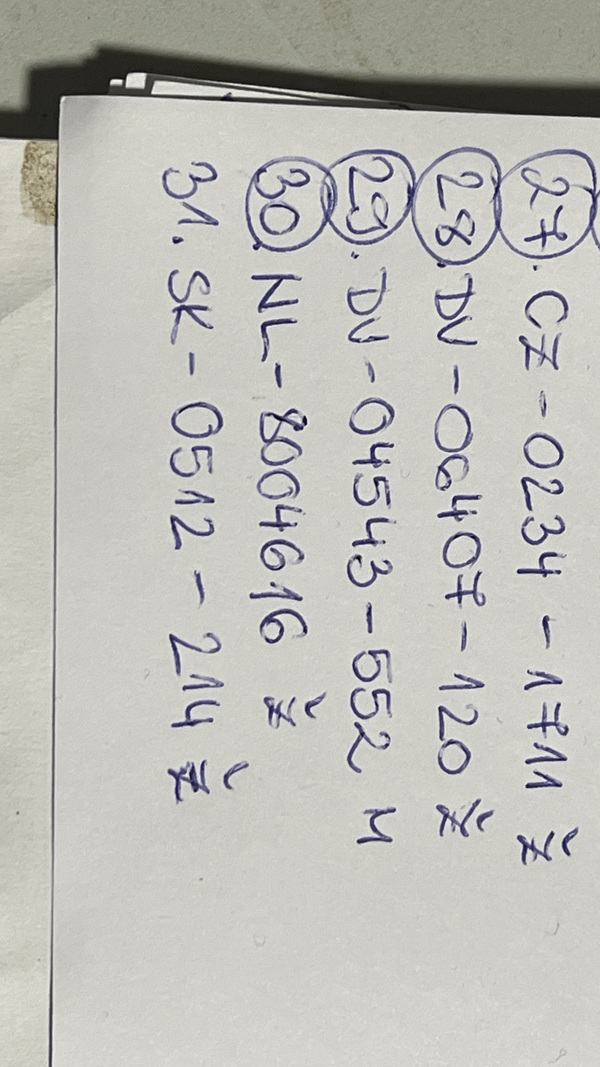 27. CZ-0234-1711 Ž
28. DV-06407-120 Ž
29. DV-04543-552 M
30. NL-8004616 Ž
31. SK-0512-214 Ž